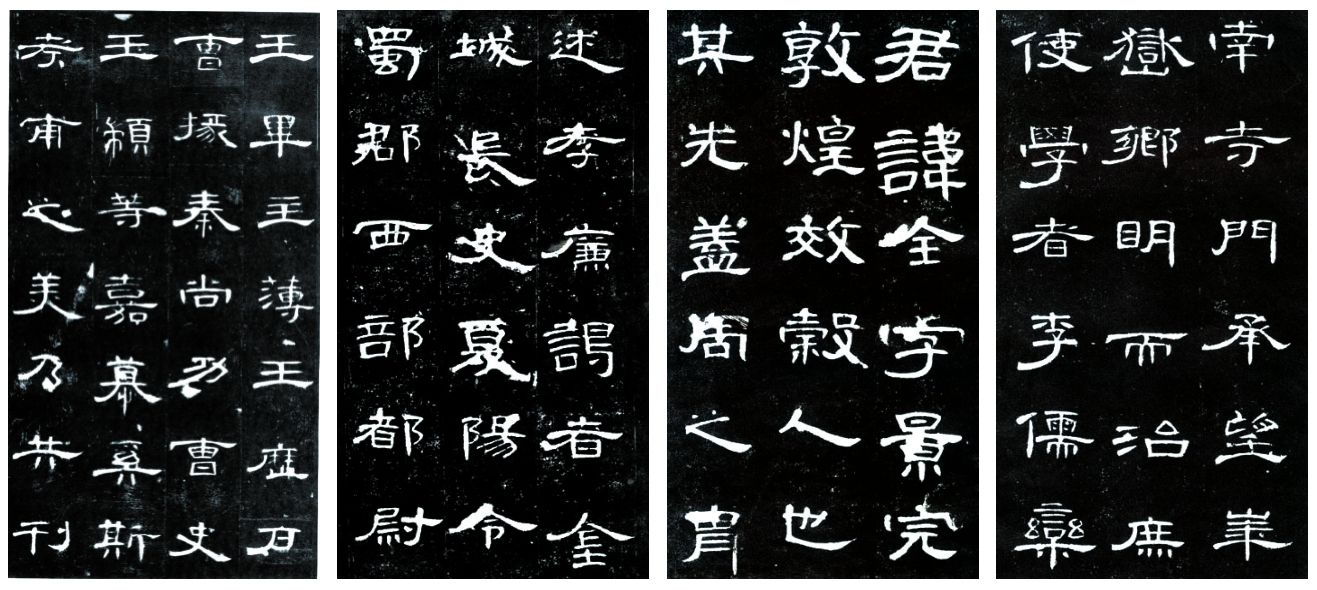 幸寺門承望華
嶽鄉明而治庶
使學者李儒欒
君諱全字景完
敦煌效穀人也
其先蓋周之胄
述孝廉謁者金
城長史夏陽令
蜀郡西部都尉
王畢王薄王歷戶
曹掾秦尚功曹史
王顓等嘉慕奚斯
考甫之美乃共刊